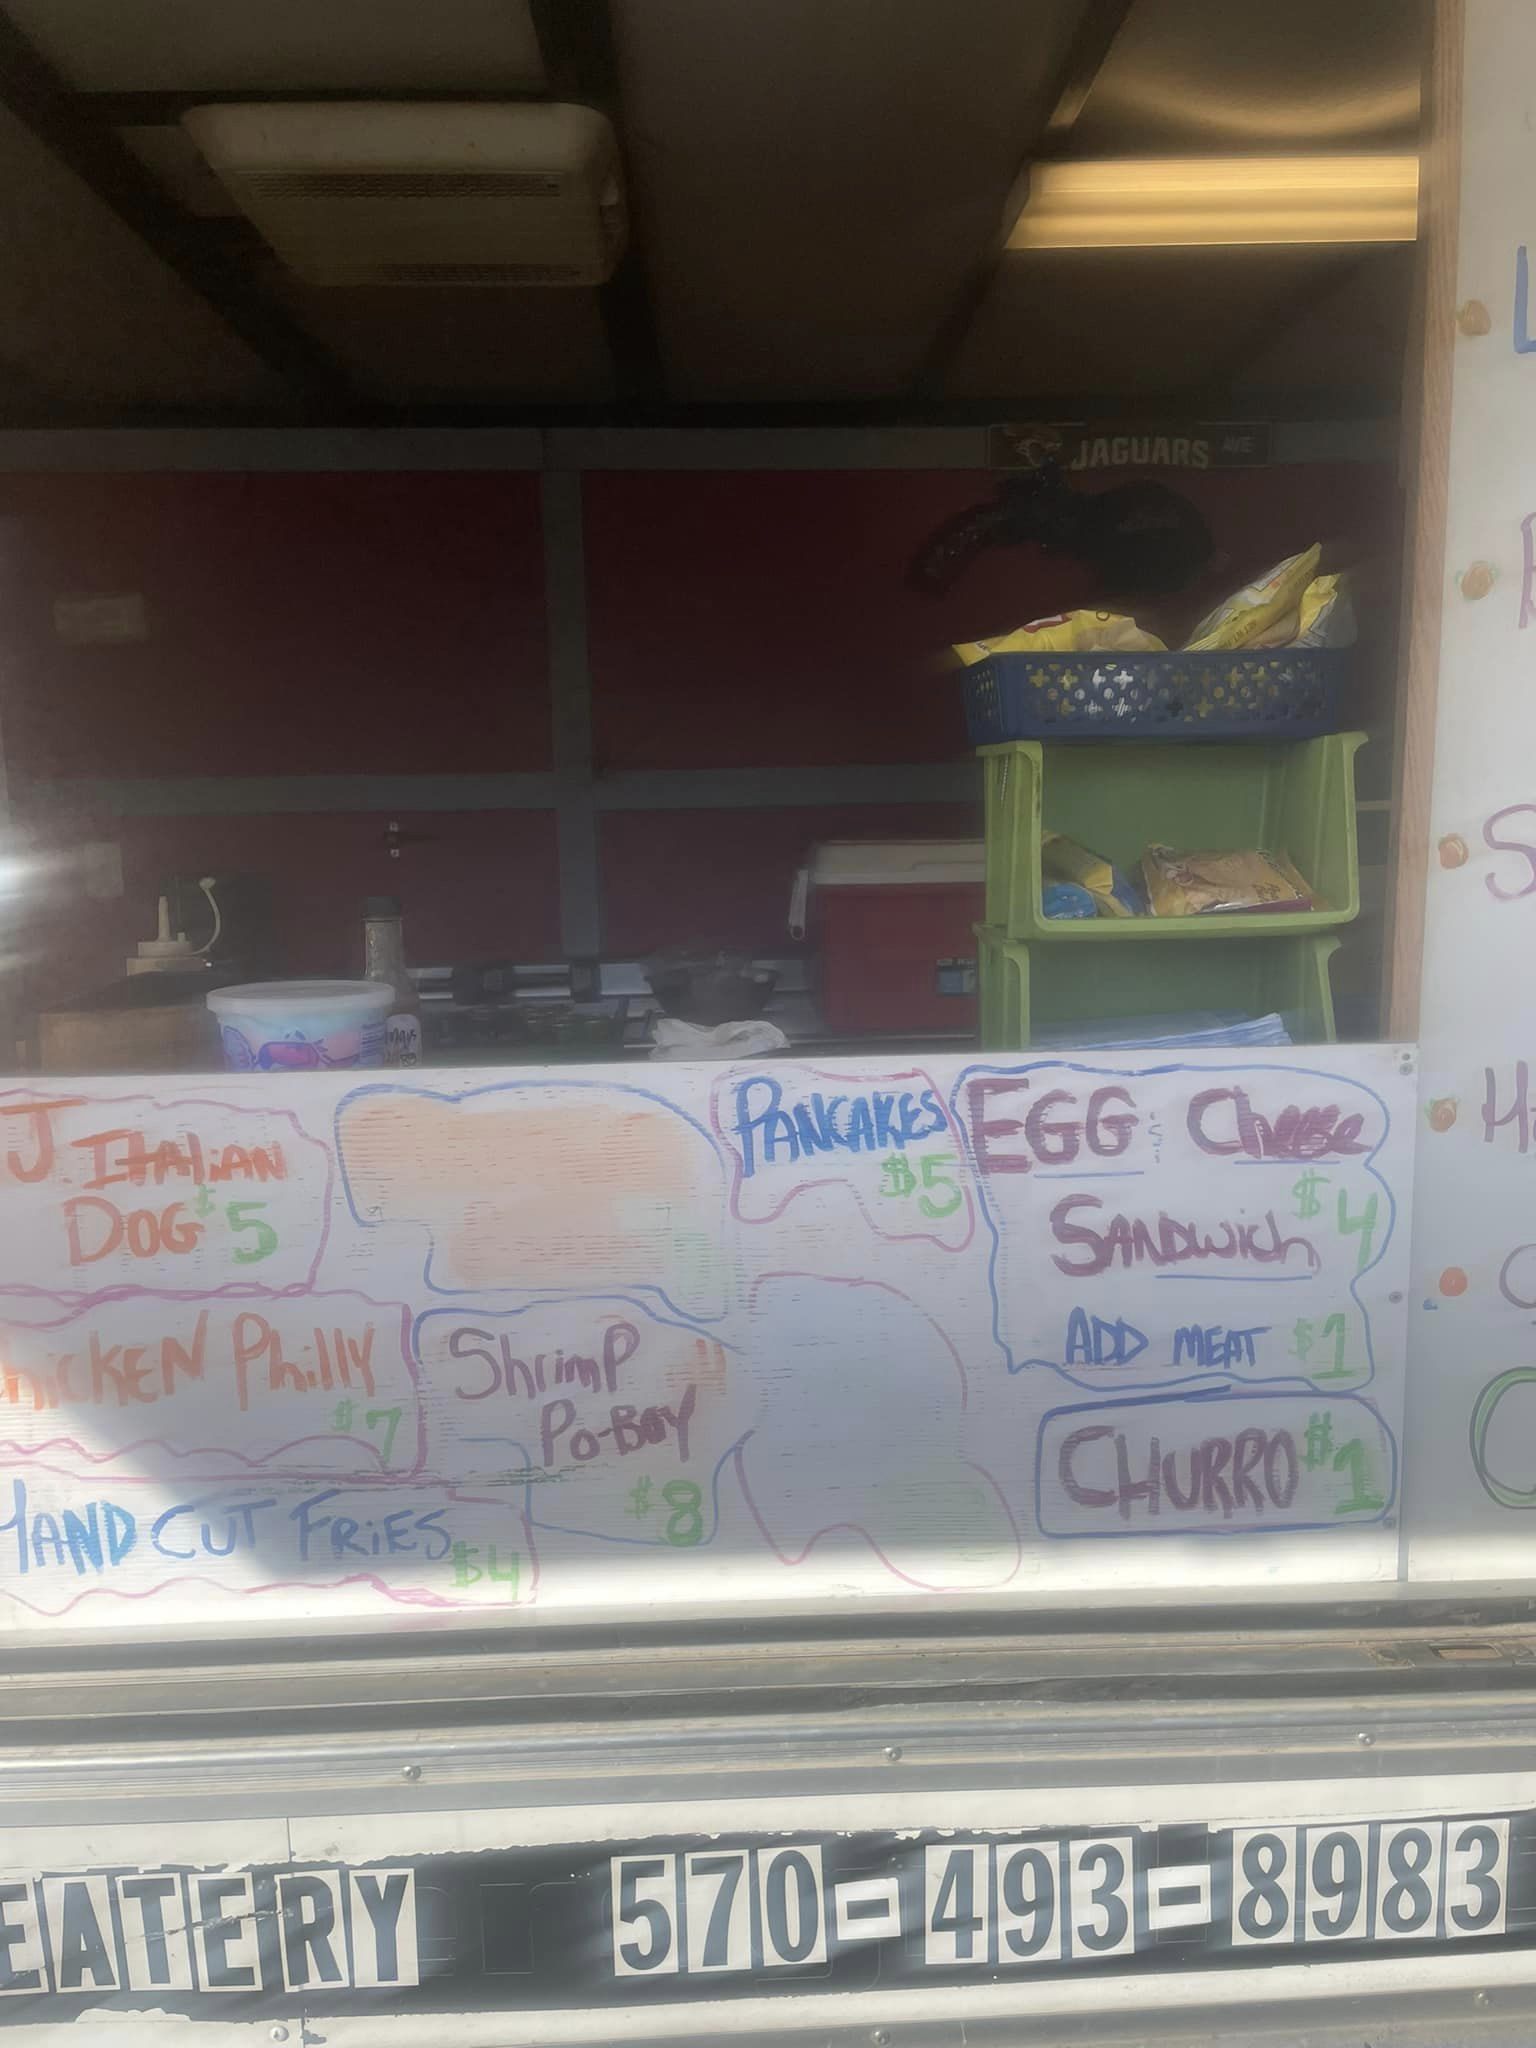 JAGUARS AVE
J. ITALIAN
DOG $5
PANCAKES
$5
EGG Cheese
SANDWich $4
ADD MEAT $1
CHICKEN Philly
$7
ShrimP
Po-BOY
$8
CHURRO $1
HAND CUT FRiES
$4
EATERY 570-493-8983